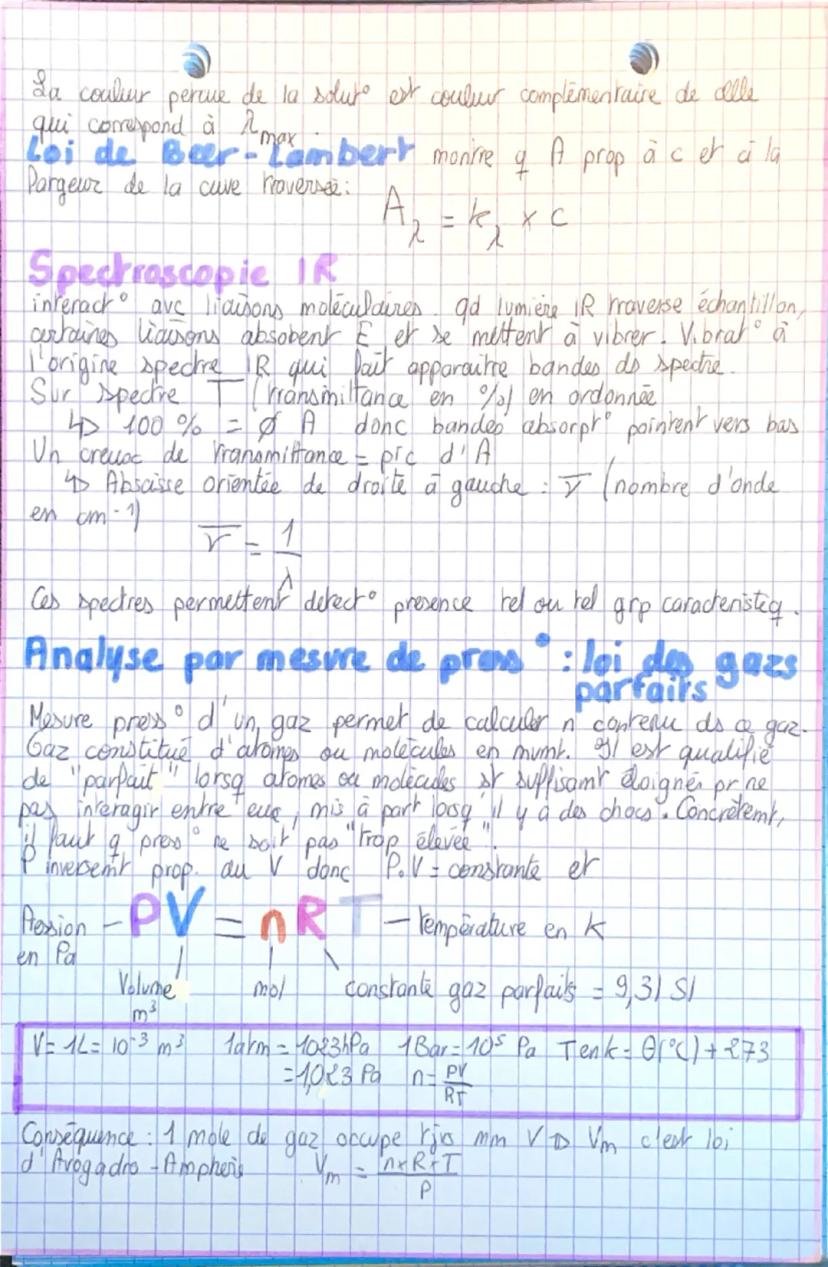 La couleur percue de la solut° est couleur complémentaire de celle
qui correspond à λmax.
Loi de Beer-Lambert montre q A prop à c et à la
largeur de la cuve traversée:
Aλ = kλ × c
Spectroscopie IR
interact° avc liaisons moléculaires. qd lumière IR traverse échantillon,
certaines liaisons absobent E et se mettent à vibrer. Vibrat° à
l'origine spectre IR qui fait apparaitre bandes ds spectre.
Sur spectre T (transmittance en %) en ordonnée
↳ 100 % = ∅ A donc bandes absorpt° pointent vers bas
Un creux de transmittance = pic d'A
↳ Abscisse orientée de droite à gauche : ν̅ (nombre d'onde
en cm-1)
ν̅ = 1/λ
Ces spectres permettent detect° presence tel ou tel grp caracteristiq.
Analyse par mesure de press° : loi des gazs
parfaits
Mesure press° d'un gaz permet de calculer n contenu ds ce gaz.
Gaz constitué d'atomes ou molécules en mvmt. Il est qualifié
de "parfait" lorsq atomes ou molécules st suffisamt éloignés pr ne
pas interagir entre eux, mis à part losq'il y a des chocs. Concrètemt,
il faut q press° ne soit pas "trop élevée".
P inversemt prop. au V donc P.V = constante et
Pression – PV = nRT – température en K
en Pa
Volume mol constante gaz parfaits = 9,31 SI
m³
V= 1L= 10⁻³ m³ 1atm = 1023hPa 1Bar = 10⁵ Pa T en K = θ(°C) + 273
=1,023 Pa n= PV/RT
Conséquence : 1 mole de gaz occupe tjrs mm V ↳ Vm c'est loi
d'Avogadro-Ampheris Vm = n×R×T/P